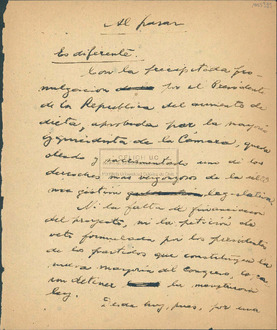 Al pasar
Es diferente
Con la precipitada pro-
mulgación por el Presidente
de la República del aumento de
dieta, aprobada por la mayo-
ría gobiernista de la Cámara, queda
y uno de los
derroches más vergonzosos de la últi-
ma gestión legislativa.
Ni la falta de financiación
del proyecto, ni la petición de
veto formulada por los presidentes
de los partidos que constituyen la
nueva mayoría del Congreso, logra-
ron detener la monstruosa
ley.
pues, por una